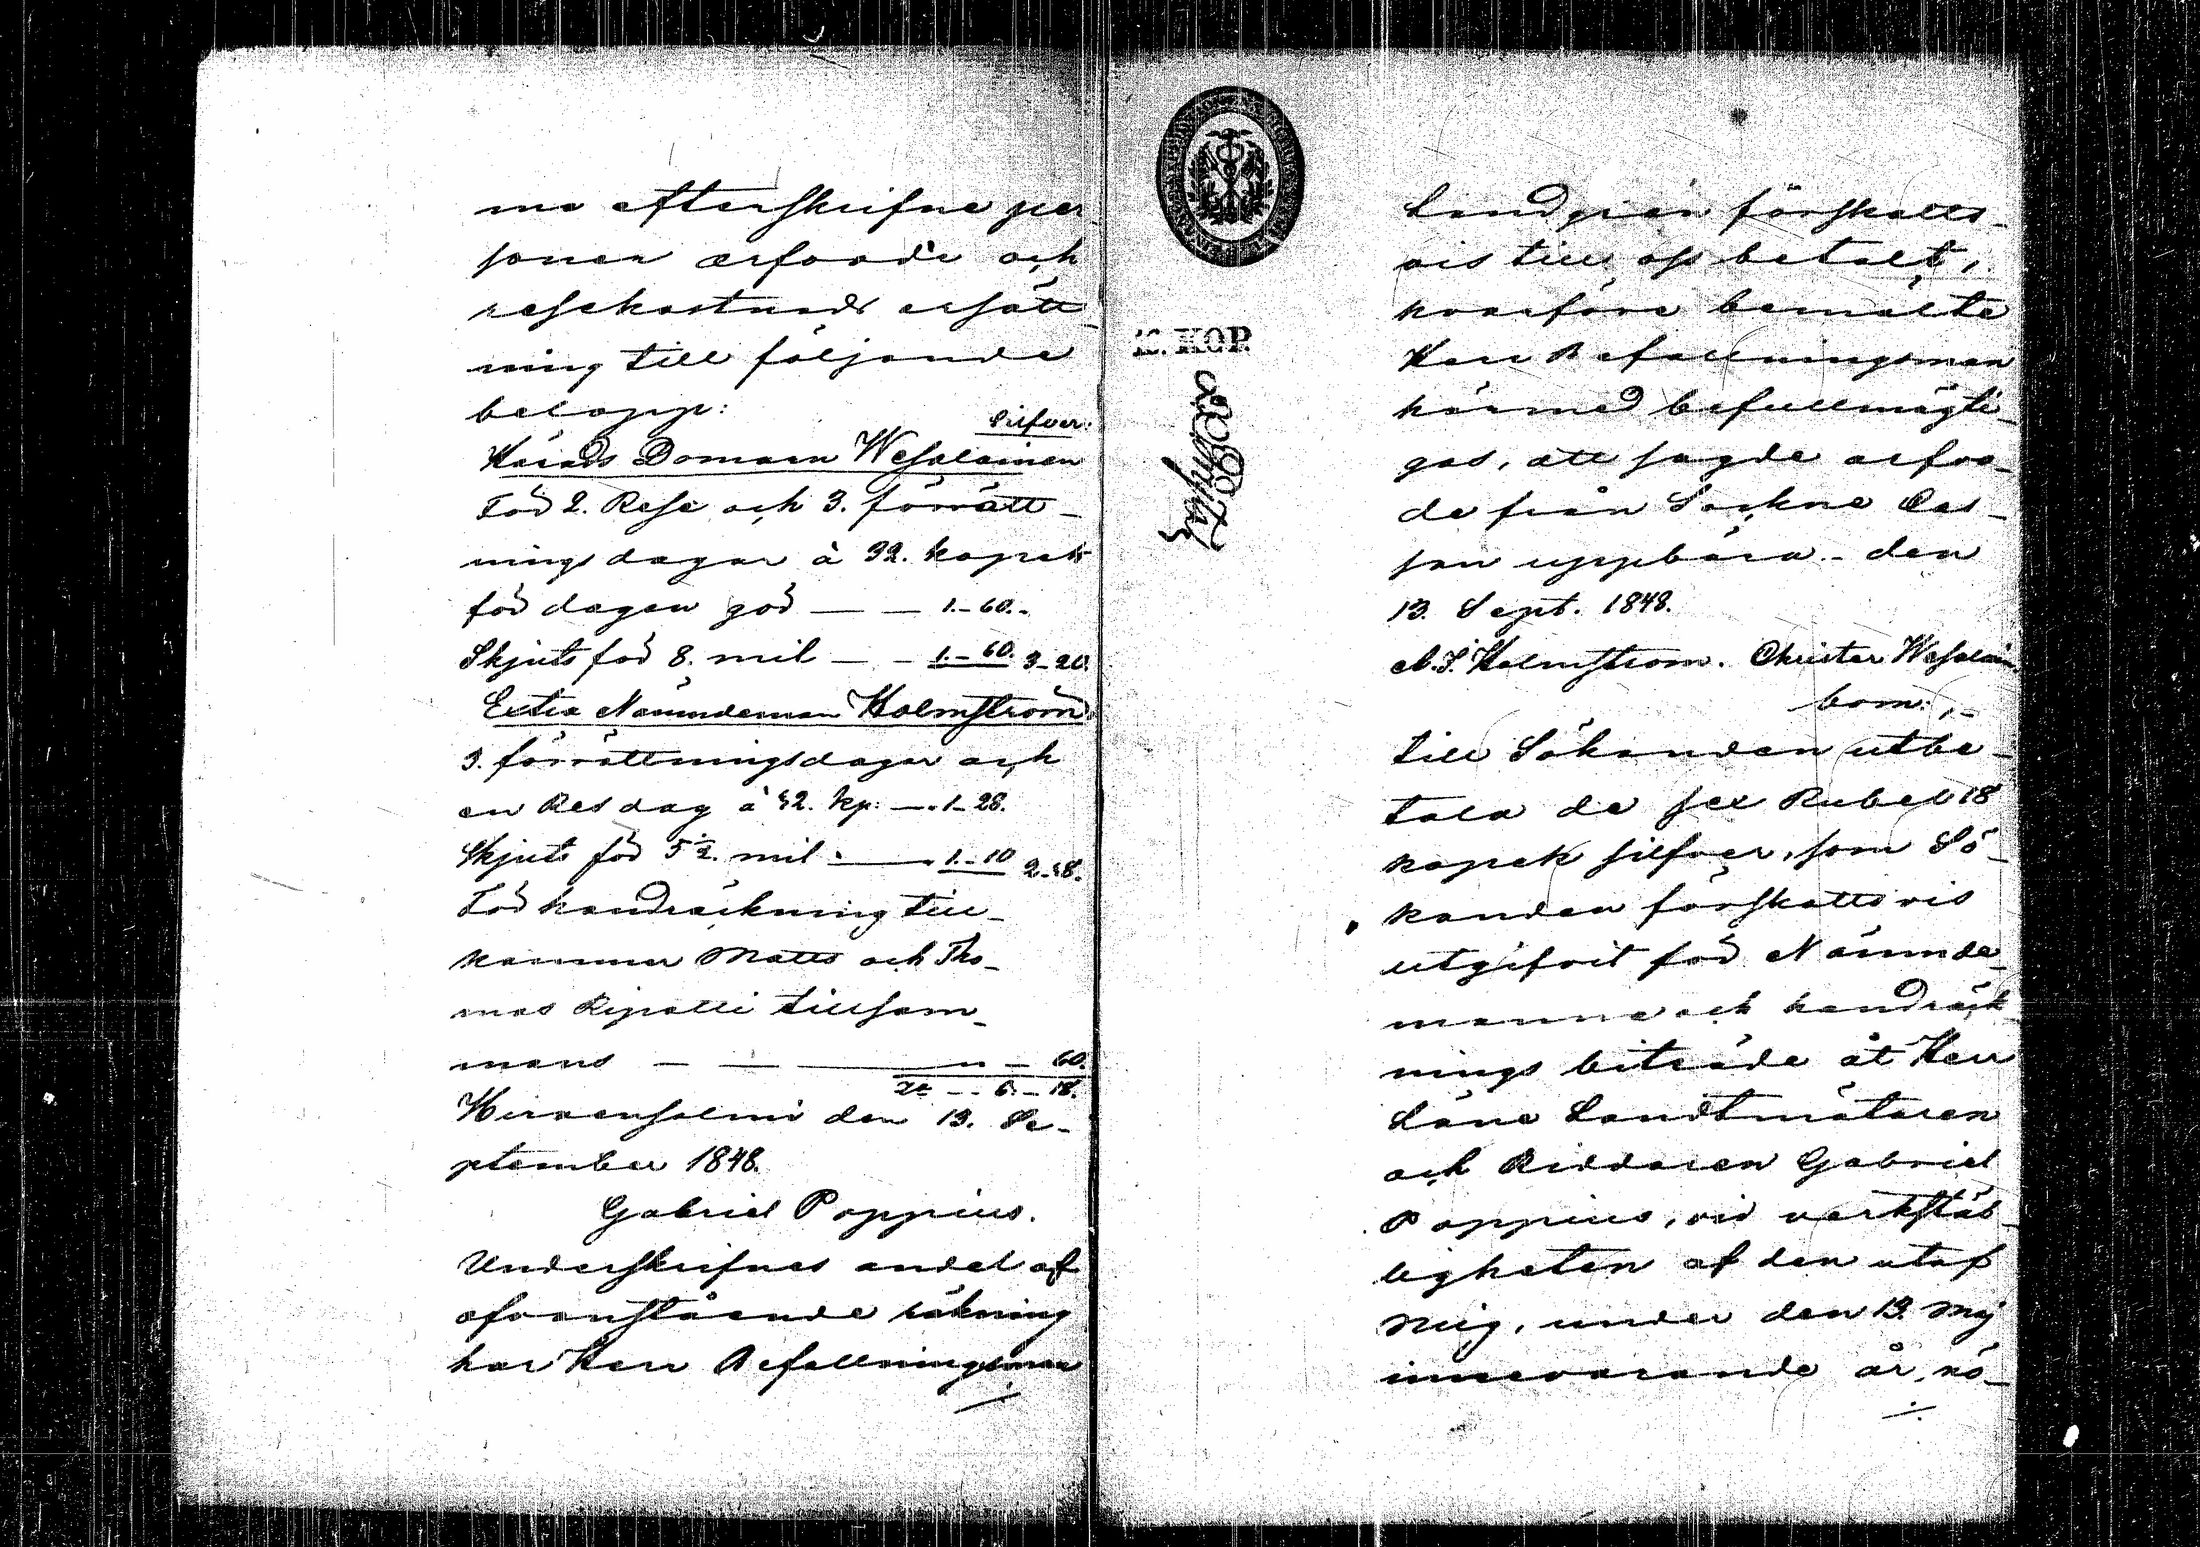 me efterskrifne per-
soner arfvode och
resekostnads ersätt-
ning till följande
belopp:
Silfver.
Härads Domarn Wesalainen
För 2. Rese och 3. förrätt-
nings dagar à 32. kopek
för dagen gör — — 1.-60.-
Skjuts för 8. mil — - 1.-60. 3-20.
Extra Nämndeman Holmström
3. förrättningsdagar och
en Resdag à 32. kp: — 1-28.
Skjuts för 5½. mil — 1.-10 2.38.
För handräckning till-
kommer Matts och Tho-
mas Ripatti tillsam-
mans — — — " — 60.
— 6. — 18.
Hirvensalmi den 13. Se-
ptember 1848.
Gabriel Poppius.
Underskrifnes andel af
ofvanstående räkning
har Herr Befallningsman
./.
10. KOP.
Landgrén förskotts-
vis till oss betalt,
hvarföre bemälte
Herr Befallningsman
härmed befullmägti-
gas, att sagde arfvo-
de från Sockne Cas-
san uppbära. - den
13. Sept. 1848.
A. J. Holmström. Christer Wesalain.
bom:,-
till Sökanden utbe-
tala de sex Rubel 18
kopek silfver, som Sö-
kanden förskottsvis
utgifvit för Nämnde-
manne och handräck-
nings biträde åt Herr
Läne Landtmätaren
och Riddaren Gabriel
Poppius, vid verkstäl-
ligheten af den utaf
mig, under den 13. Maj
innevarande år, nö-
./.